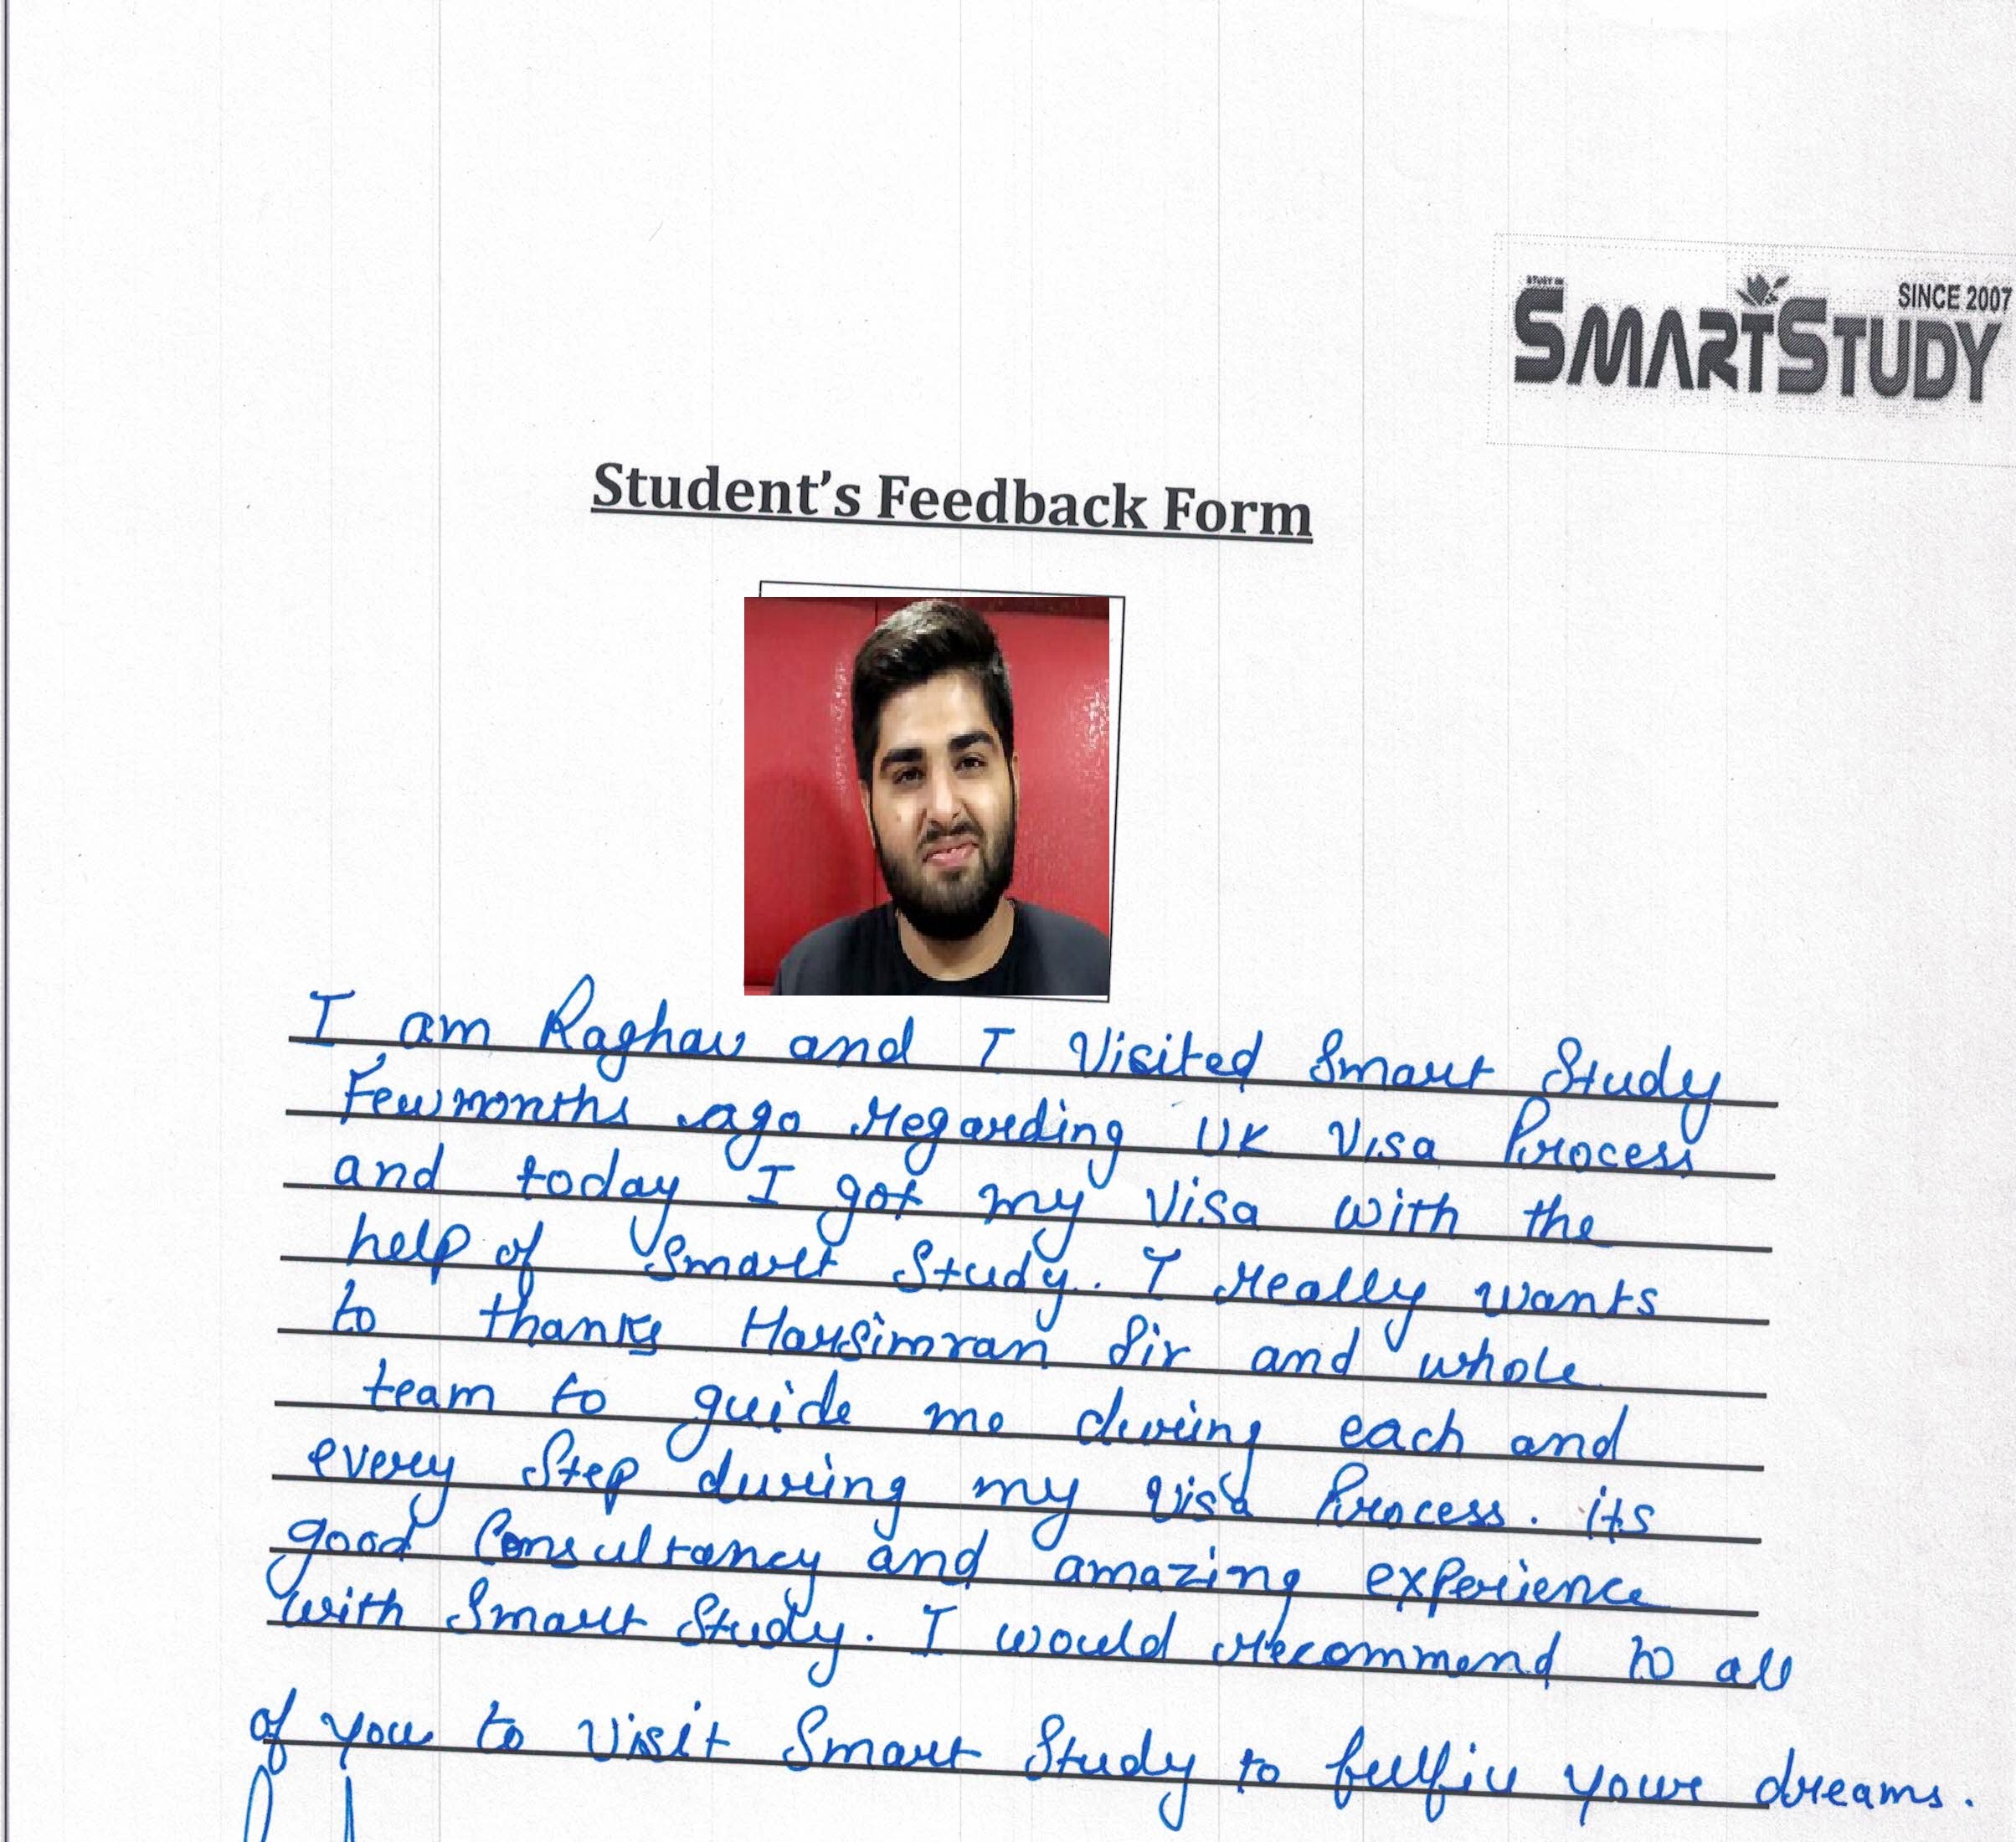 STUDY IN
SINCE 2007
SMARTSTUDY
Student's Feedback Form
I am Raghav and I Visited Smart Study
Few months ago regarding UK Visa Process
and today I got my Visa with the
help of Smart Study. I really wants
to thanks Harsimran Sir and whole
team to guide me during each and
every Step during my Visa Process. its
good Consultancy and amazing experience
with Smart Study. I would recommend to all
of you to Visit Smart Study to fulfill your dreams.